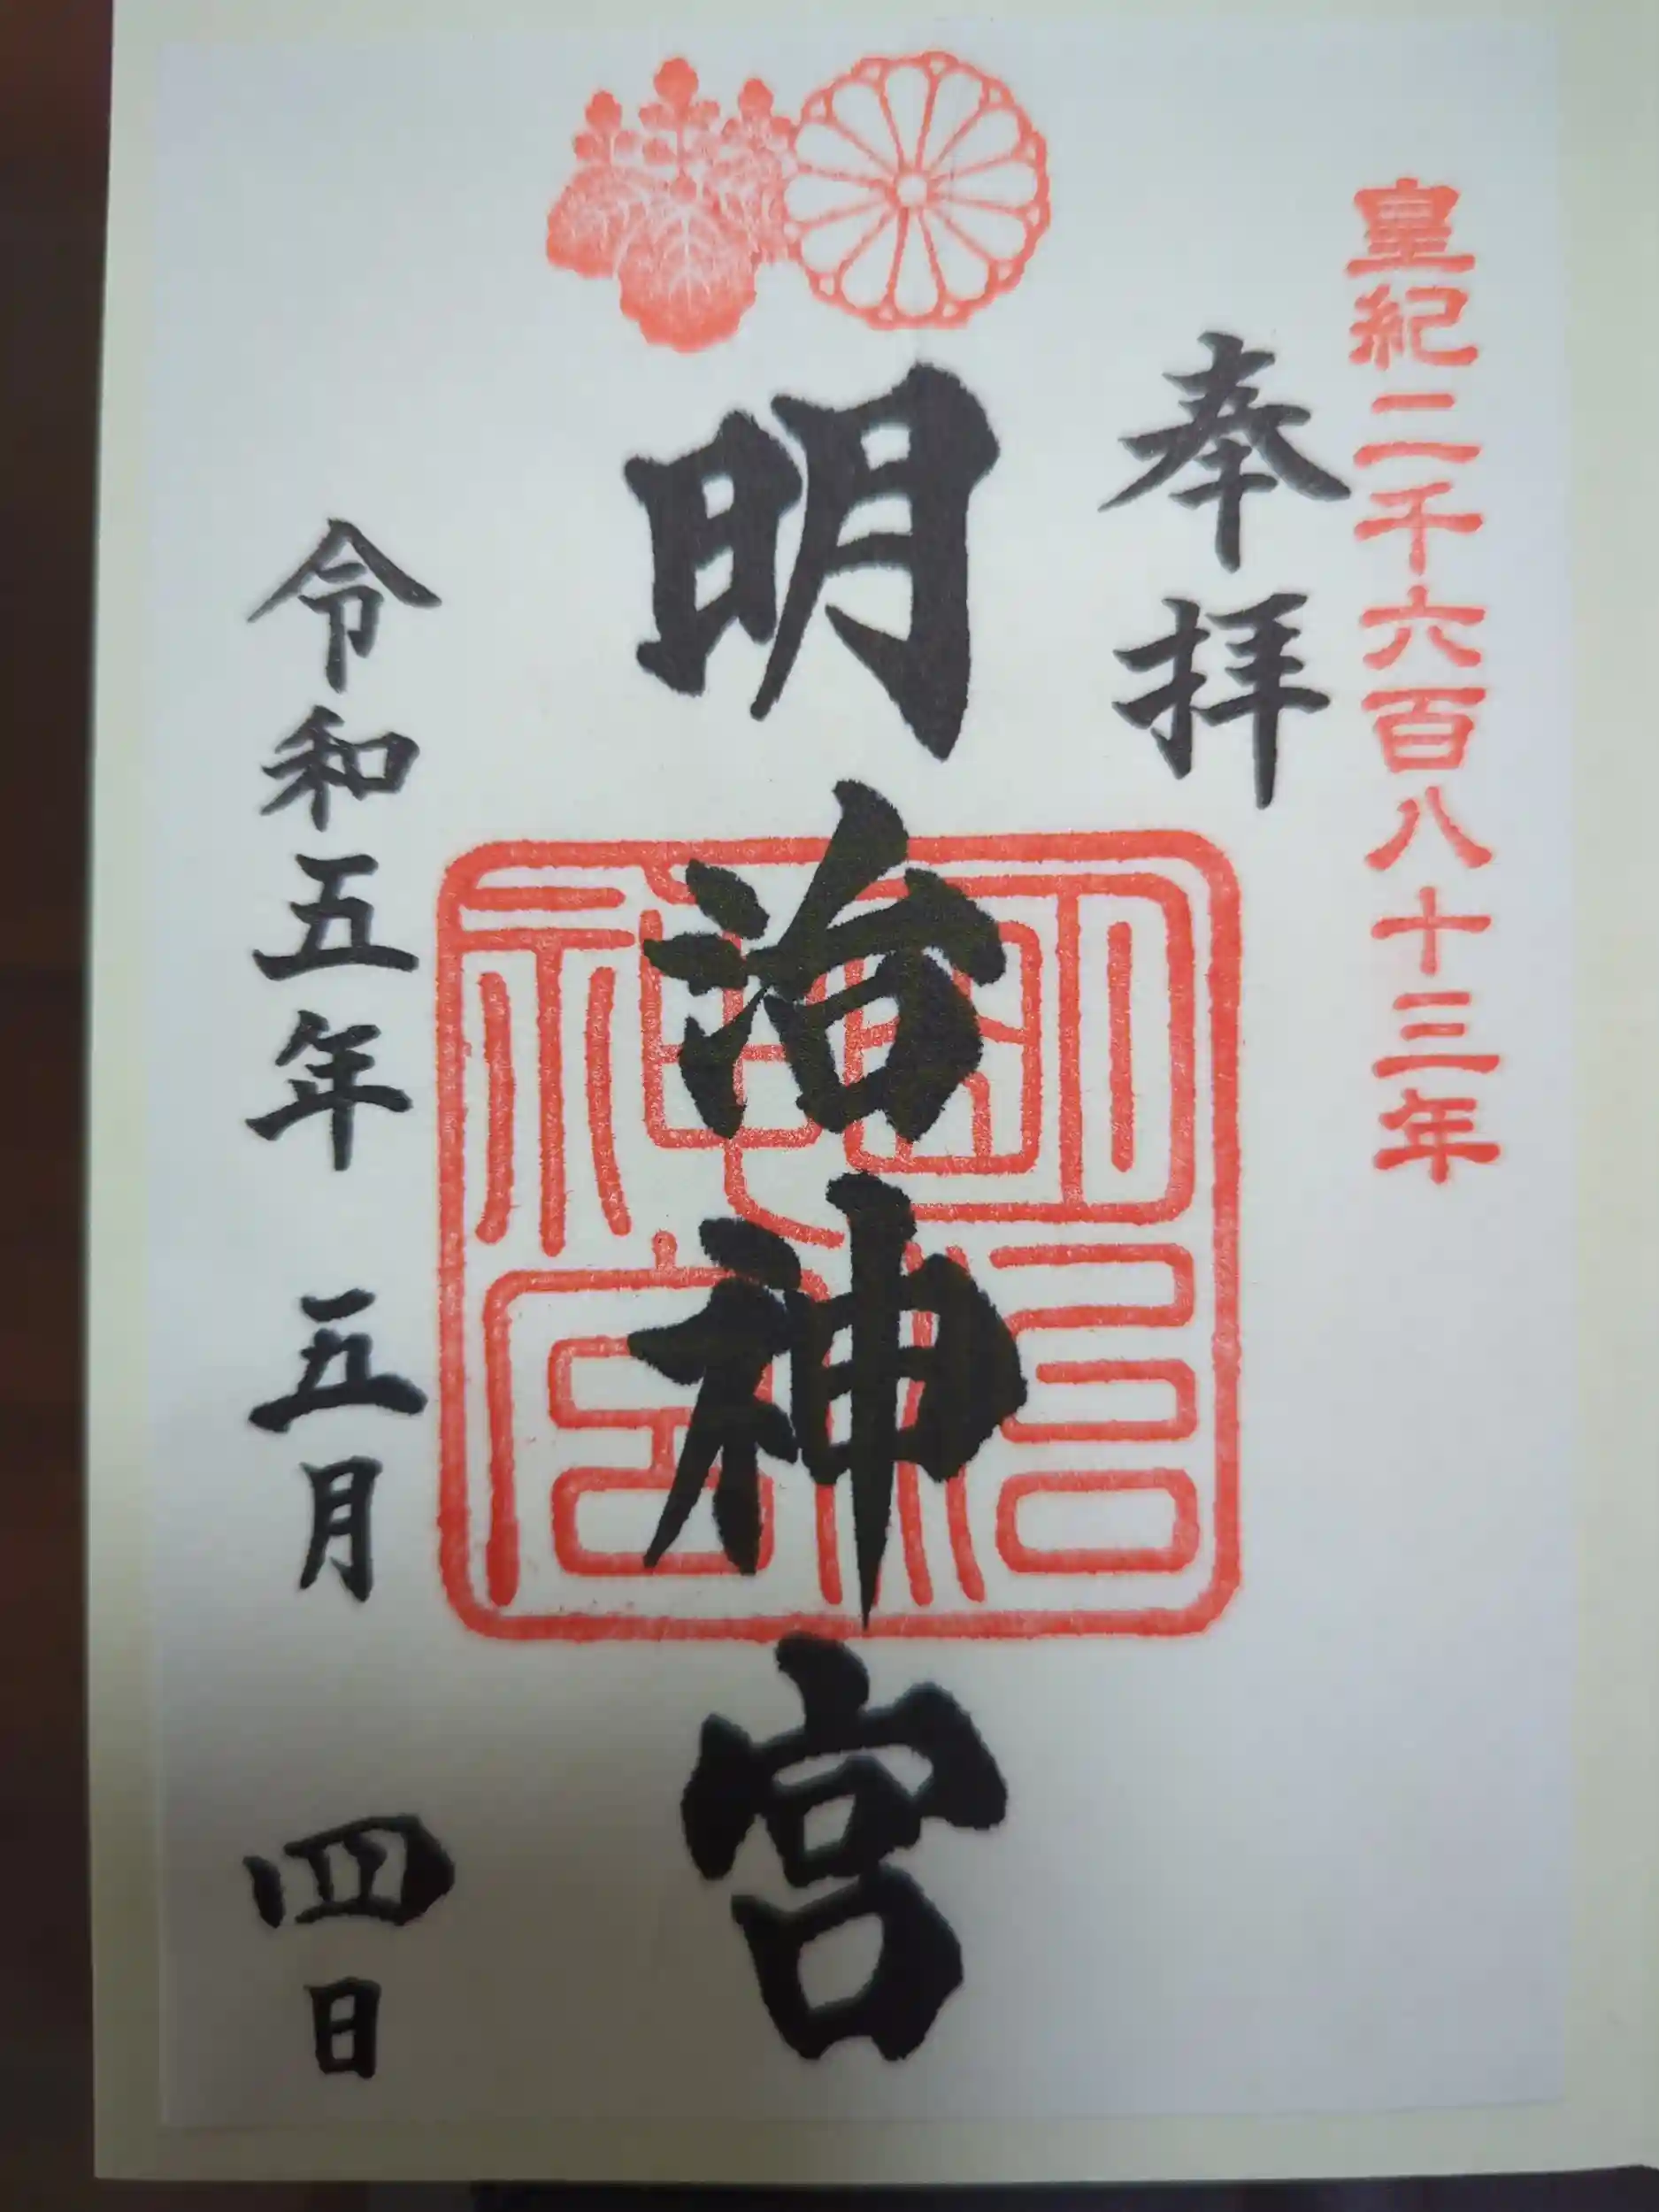 皇紀二千六百八十三年
奉拝
明治神宮
明治神宮
令和五年 五月 四日